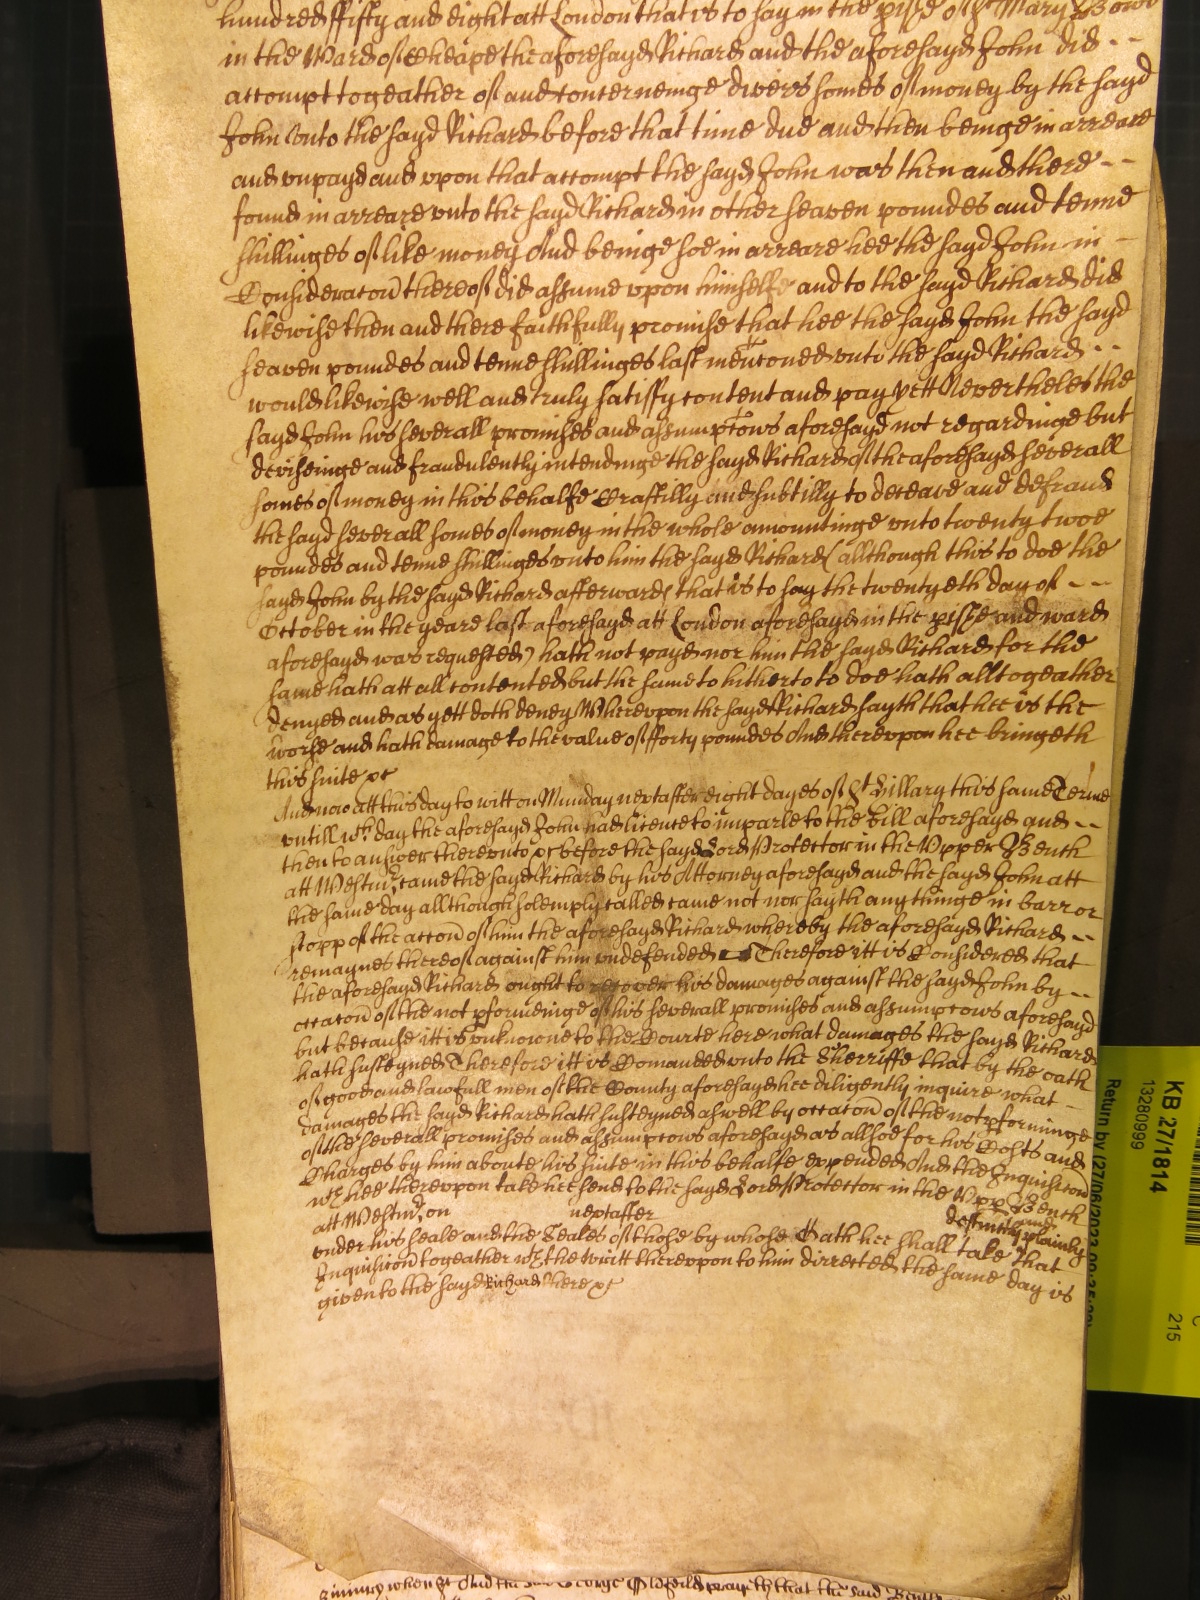 hundred ffifty and eight att London that is to say in the pish of St Mary Bow
in the Ward of Cheape the aforesayd Richard and the aforesayd John did - -
accompt togeather of and concerneinge divers somes of money by the sayd
John unto the sayd Richard before that time due and then beinge in arreare
and unpayd and upon that accompt the sayd John was then and there - -
found in arreare unto the sayd Richard in other seaven poundes and tenne
shillinges of like money And beinge soe in arreare hee the sayd John in -
Consideracon thereof did assume upon himselfe and to the sayd Richard did
likewise then and there faithfully promise that hee the sayd John the sayd
seaven poundes and tenne shillinges last menconed unto the sayd Richard - -
would likewise well and truly satisfy content and pay yett Neverthelesse the
sayd John his severall promises and assumpcons aforesayd not regardinge but
deviseinge and fraudulently intendinge the sayd Richard of the aforesayd severall
somes of money in this behalfe Craftilly and subtilly to deceave and defraud
the sayd severall somes of money in the whole amountinge unto twenty twoe
poundes and tenne shillinges unto him the sayd Richard (allthough this to doe the
sayd John by the sayd Richard afterwards that is to say the twentyeth day of - -
October in the yeare last aforesayd att London aforesayd in the pishe and ward
aforesayd was requested) hath not payd nor him the sayd Richard for the
same hath att all contented but the same to hitherto to doe hath alltogeather
denyed and as yett doth deney Whereupon the sayd Richard sayth that hee is the
worse and hath damage to the value of fforty poundes And thereupon hee bringeth
this suite &c
And now att this day to witt on Munday next after eight dayes of St Hillary this same Terme
untill wch day the aforesayd John had licence to imparle to the Bill aforesayd and - -
then to answer thereunto &c before the sayd Lord Protector in the Upper Bench
att Westmr came the sayd Richard by his Attorney aforesayd and the sayd John att
the same day allthough solemply called came not nor sayth any thinge in barr or
stopp of the accon of him the aforesayd Richard whereby the aforesayd Richard - -
remaynes thereof against him undefended Therefore itt is Considered that
the aforesayd Richard ought to recover his damages against the sayd John by - -
occacon of the not pformeinge of his severall promises and assumpcons aforesayd
but because itt is unknowne to the Courte here what damages the sayd Richard
hath susteyned Therefore itt is Comanded unto the Sherriffe that by the oath
of good and lawfull men of the County aforesayd hee diligently inquire what -
damages the sayd Richard hath susteyned aswell by occacon of the not pforminge
of the severall promises and assumpcons aforesayd as allsoe for his Costs and
Charges by him aboute his suite in this behalfe expended And the Inquisicon
wch hee thereupon take hee send to the sayd Lord Protector in the Upp Bench
att Westmr on next after destinctly and plainly
under his seale and the Seales of those by whose Oath hee shall take that
Inquisicon togeather wth the writt thereupon to him dirrected the same day is
given to the sayd Richard here &c
KB 27/1814
13280999
Return by (27/06/2023
215